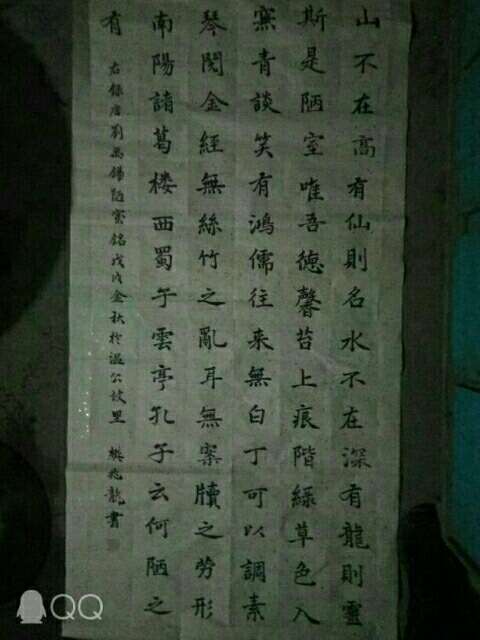 山不在高有仙則名水不在深有龍則靈
斯是陋室唯吾德馨苔上痕階綠草色入
青談笑有鴻儒往來無白丁可以調素
琴閱金經無絲竹之亂耳無案牘之勞形
南陽諸葛楼西蜀子雲亭孔子云何陋之
有
右錄唐劉禹錫陋室銘戊戌金秋於温公故里 樊兆龍書
QQ